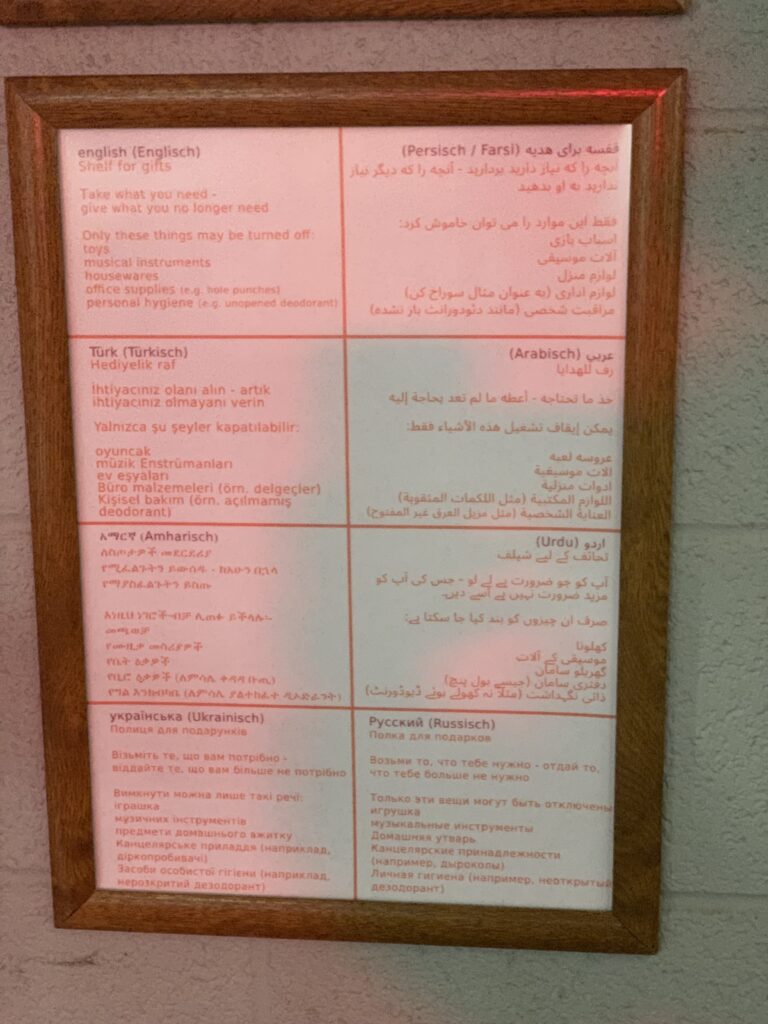 english (Englisch)
Shelf for gifts
Take what you need -
give what you no longer need
Only these things may be turned off:
toys
musical instruments
housewares
office supplies (e.g. hole punches)
personal hygiene (e.g. unopened deodorant)
قفسه برای هدیه (Persisch / Farsi)
آنچه را که نیاز دارید بردارید - آنچه را که دیگر نیاز
ندارید به او بدهید
فقط این موارد را می توان خاموش کرد:
اسباب بازی
آلات موسیقی
لوازم منزل
لوازم اداری (به عنوان مثال سوراخ کن)
مراقبت شخصی (مانند دئودورانت باز نشده)
Türk (Türkisch)
Hediyelik raf
İhtiyacınız olanı alın - artık
ihtiyacınız olmayanı verin
Yalnızca şu şeyler kapatılabilir:
oyuncak
müzik Enstrümanları
ev eşyaları
Büro malzemeleri (örn. delgeçler)
Kişisel bakım (örn. açılmamış
deodorant)
عربي (Arabisch)
رف للهدايا
خذ ما تحتاجه - أعطه ما لم تعد بحاجة إليه
يمكن إيقاف تشغيل هذه الأشياء فقط:
عروسه لعبه
الات موسيقية
ادوات منزلية
اللوازم المكتبية (مثل اللكمات المثقوبة)
العناية الشخصية (مثل مزيل العرق غير المفتوح)
አማርኛ (Amharisch)
ለስጦታዎች መደርደሪያ
የሚፈልጉትን ይውሰዱ - ከአሁን በኋላ
የማያስፈልጉትን ይስጡ
እነዚህ ነገሮች ብቻ ሊጠፉ ይችላሉ፡-
መጫወቻ
የሙዚቃ መሳሪያዎች
የቤት ዕቃዎች
የቢሮ ዕቃዎች (ለምሳሌ ቀዳዳ ቡጢ)
የግል እንክብካቤ (ለምሳሌ ያልተከፈተ ዲኦድራንት)
اردو (Urdu)
تحائف کے لیے شیلف
آپ کو جو ضرورت ہے لے لو - جس کی آپ کو
مزید ضرورت نہیں ہے اسے دیں۔
صرف ان چیزوں کو بند کیا جا سکتا ہے:
کھلونا
موسیقی کے آلات
گھریلو سامان
دفتری سامان (جیسے ہول پنچ)
ذاتی نگہداشت (مثلاً نہ کھولے ہوئے ڈیوڈورنٹ)
українська (Ukrainisch)
Полиця для подарунків
Візьміть те, що вам потрібно -
віддайте те, що вам більше не потрібно
Вимкнути можна лише такі речі:
іграшка
музичних інструментів
предмети домашнього вжитку
Канцелярське приладдя (наприклад,
діркопробивачі)
Засоби особистої гігієни (наприклад,
нерозкритий дезодорант)
Русский (Russisch)
Полка для подарков
Возьми то, что тебе нужно - отдай то,
что тебе больше не нужно
Только эти вещи могут быть отключены
игрушка
музыкальные инструменты
Домашняя утварь
Канцелярские принадлежности
(например, дыроколы)
Личная гигиена (например, неоткрытый
дезодорант)